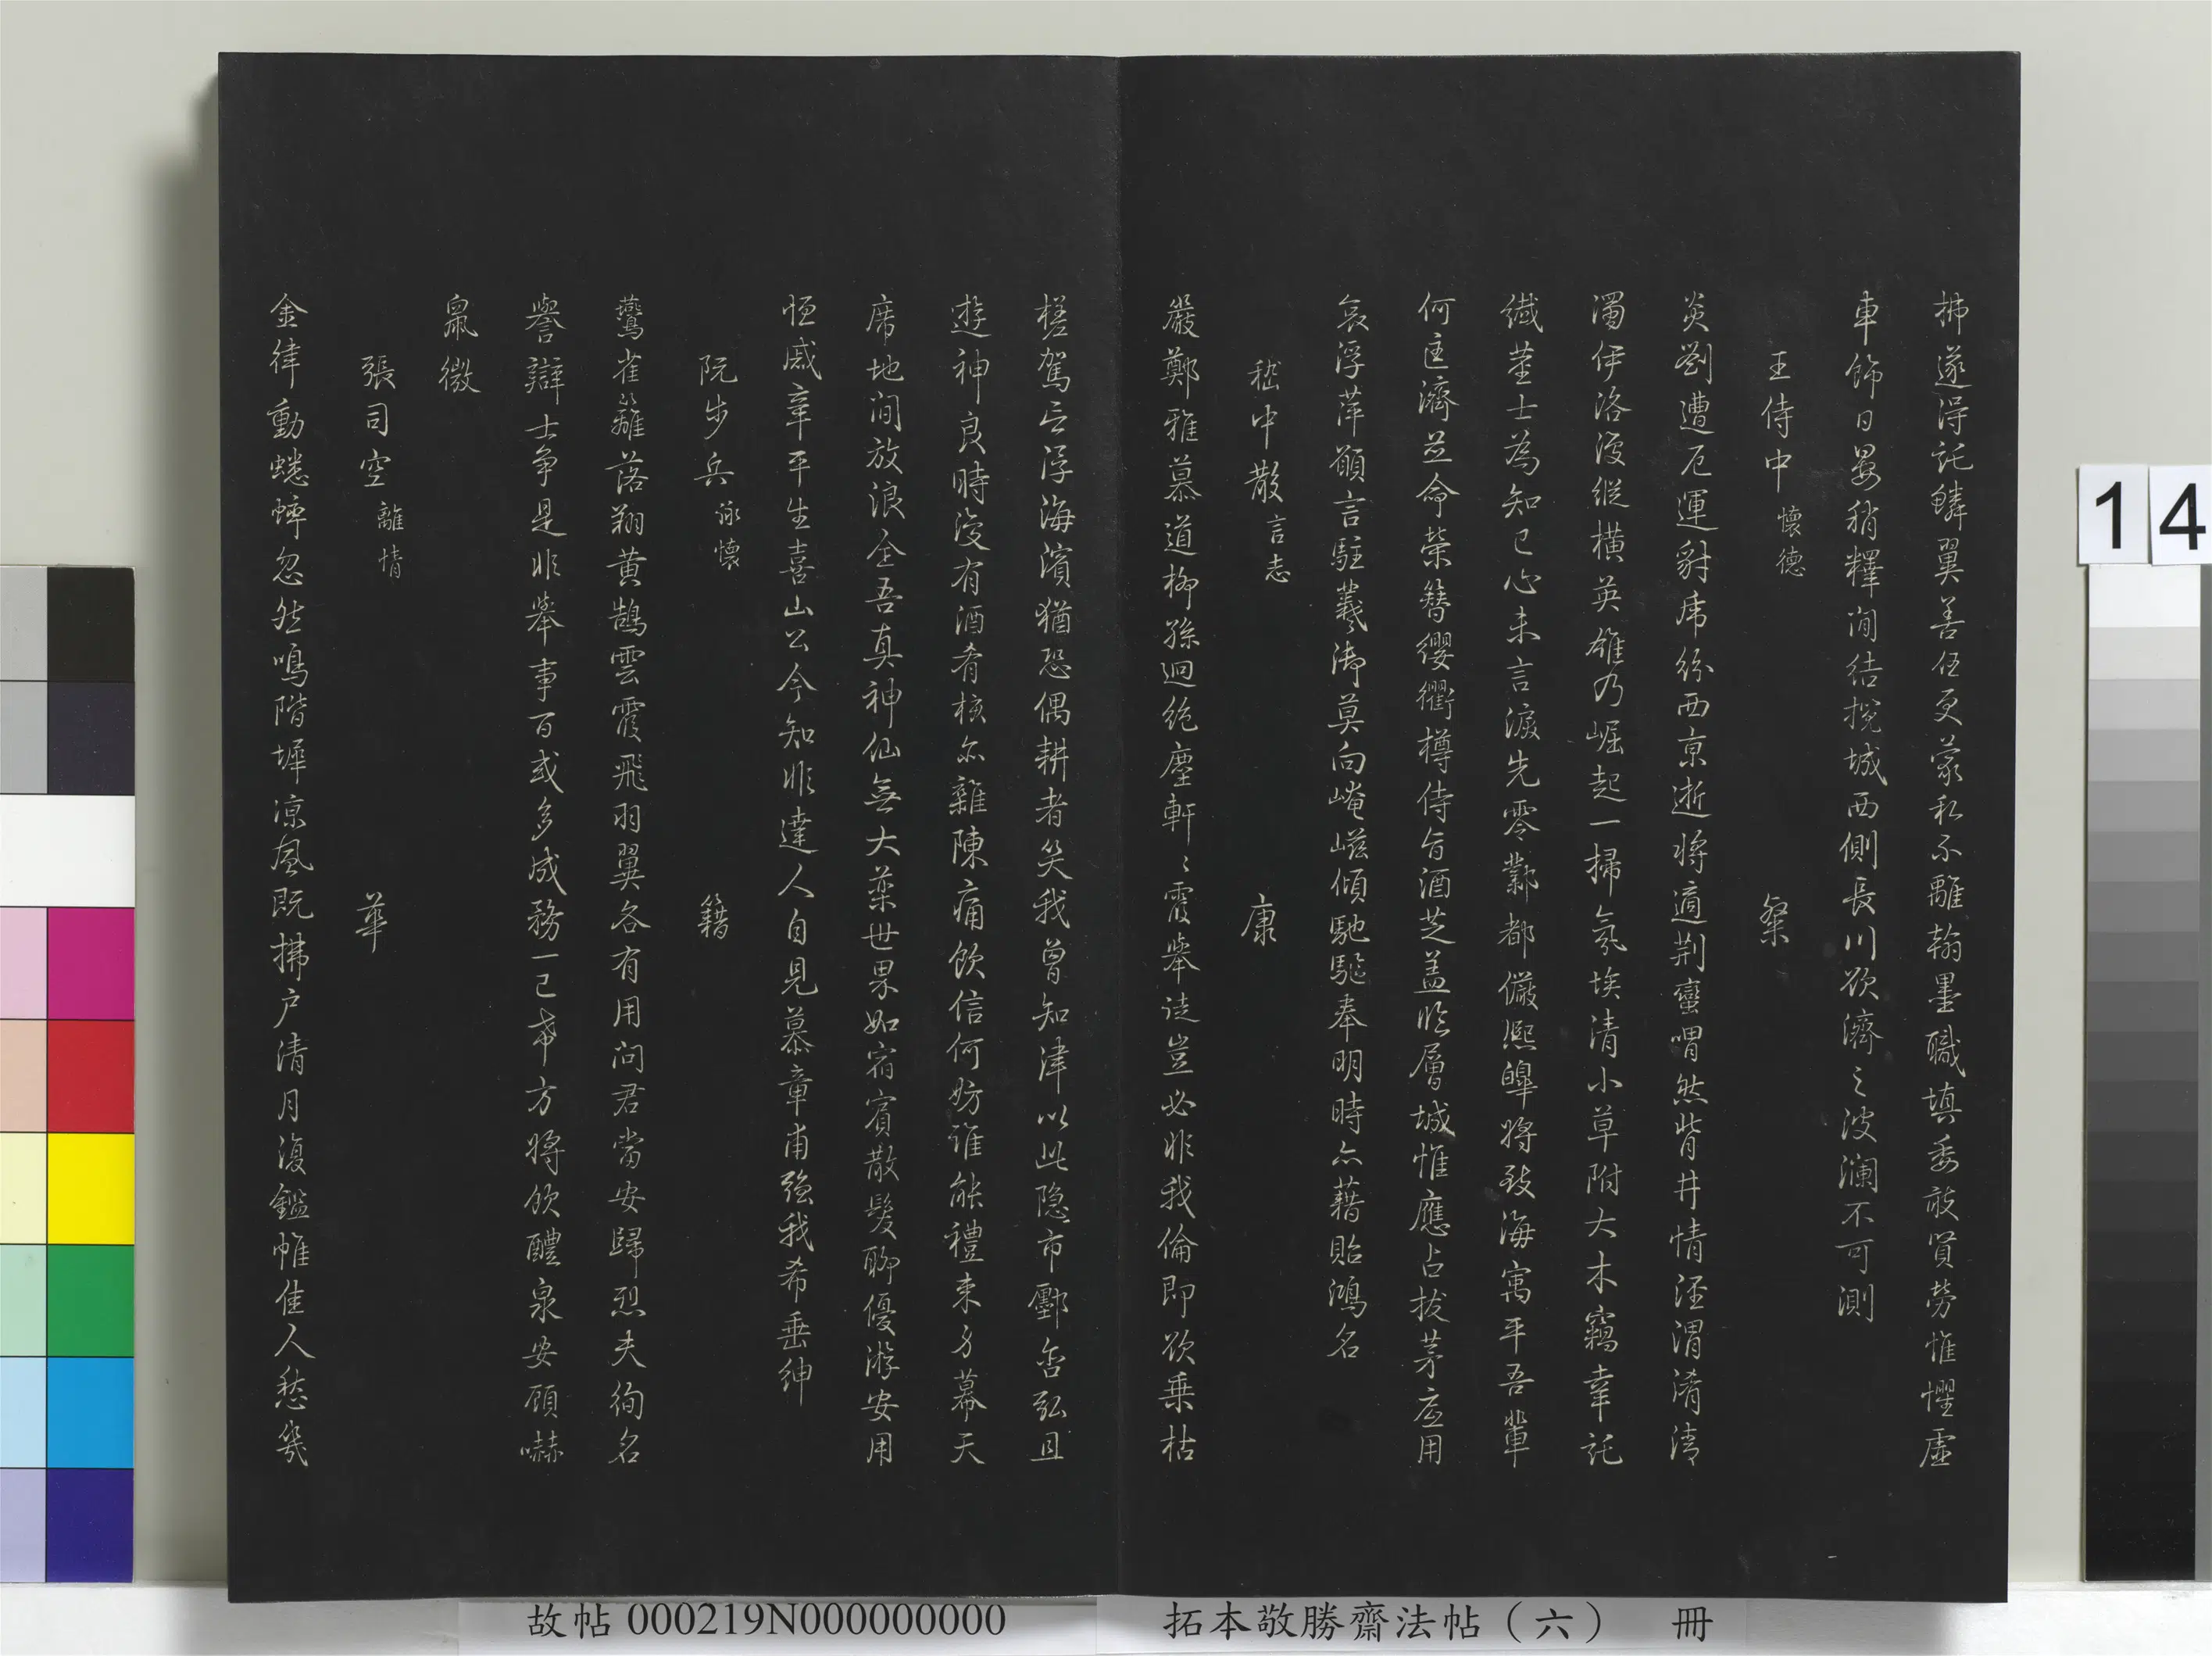 拂遂得託鱗翼善伍更蒙私不離翰墨職填委敢賢勞惟懼虛
車飾日晏稍釋閒結攬城西側長川欲濟之波瀾不可測
王侍中 懷德 粲
炎劉遭厄運豺虎紛西京逝將適荆蠻喟然背井情涇渭淆清
濁伊洛復縱橫英雄乃崛起一掃氛埃清小草附大木竊幸託
纖莖士為知己心未言淚先零鄴都儼熙皞將致海寓平吾輩
何匡濟並命榮簪纓衢樽侍旨酒芝蓋臨層城惟應占拔茅庶用
哀浮萍願言駐羲御莫向崦嵫傾馳驅奉明時亦藉貽鴻名
嵇中散 言志 康
嚴鄭雅慕道柳孫迥絕塵軒々霞舉誼豈必非我倫即欲乗枯
槎駕言浮海濱猶恐偶耕者笑我曾知津以此隐市酆舍弘且
遊神良時復有酒肴核亦雜陳痛飲信何妨誰能禮束身幕天
席地间放浪全吾真神仙無大藥世界如宿賓散髮聊優游安用
恆戚辛平生喜山公今知非達人自見慕章甫強我希垂紳
阮步兵 詠懷 籍
鷰雀籬落翔黄鵠雲霞飛羽翼各有用问君當安歸烈夫徇名
譽辯士爭是非舉事百或多成務一已希方將飲醴泉安顧嚇
鼠微
張司空 離情 華
金律動蟋蟀忽然鳴階墀凉風既拂户清月復鑑帷佳人愁幾
14
故帖 000219N000000000
拓本敬勝齋法帖（六） 冊